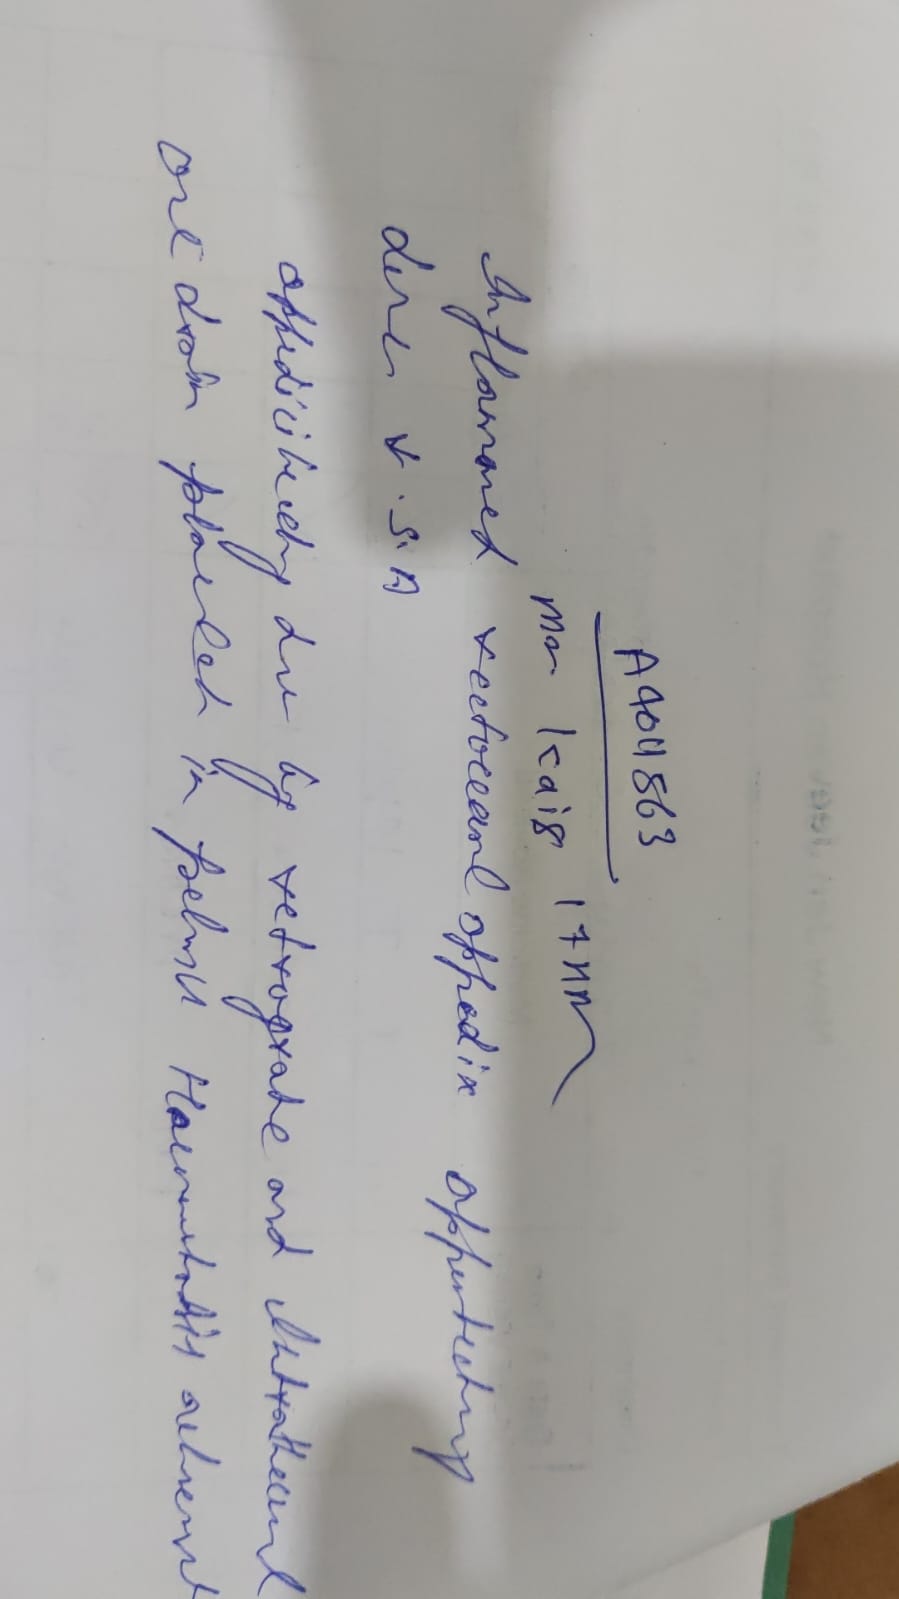 A4011863
Mr. Kais 17 M
Inflammed retrocecal appedix appentectmy
done v. S. A
appedicitectmy due by retrograde and Intrathecal
one drain placeed in pelvis Haemostasis achievent